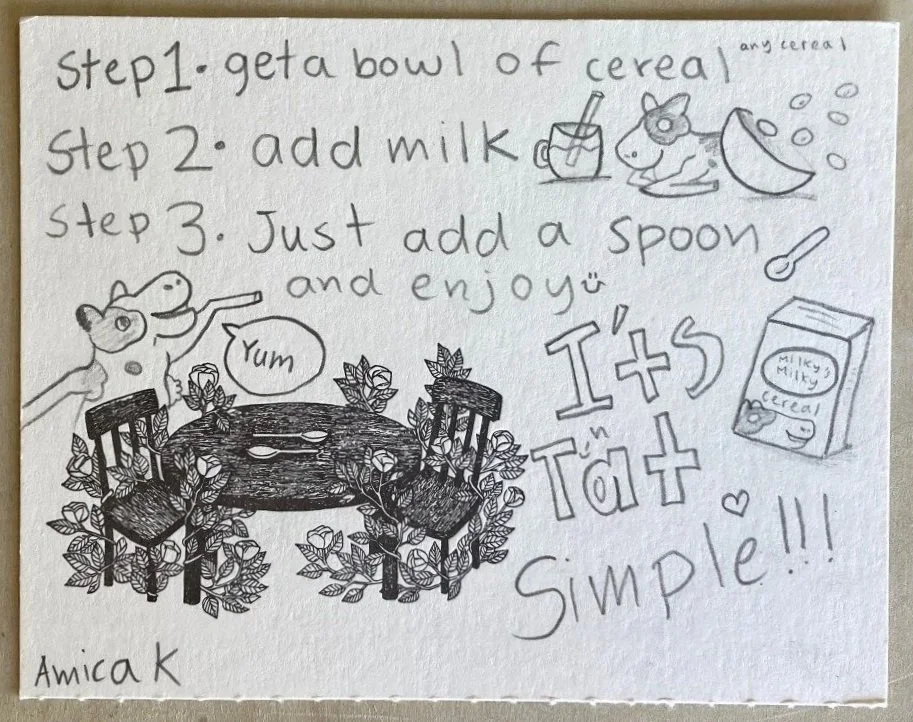 Step 1. get a bowl of cereal any cereal
Step 2. add milk
Step 3. Just add a spoon
and enjoy
Yum
It's
Milky's
Milky
cereal
Tat
Simple!!!
Amica K